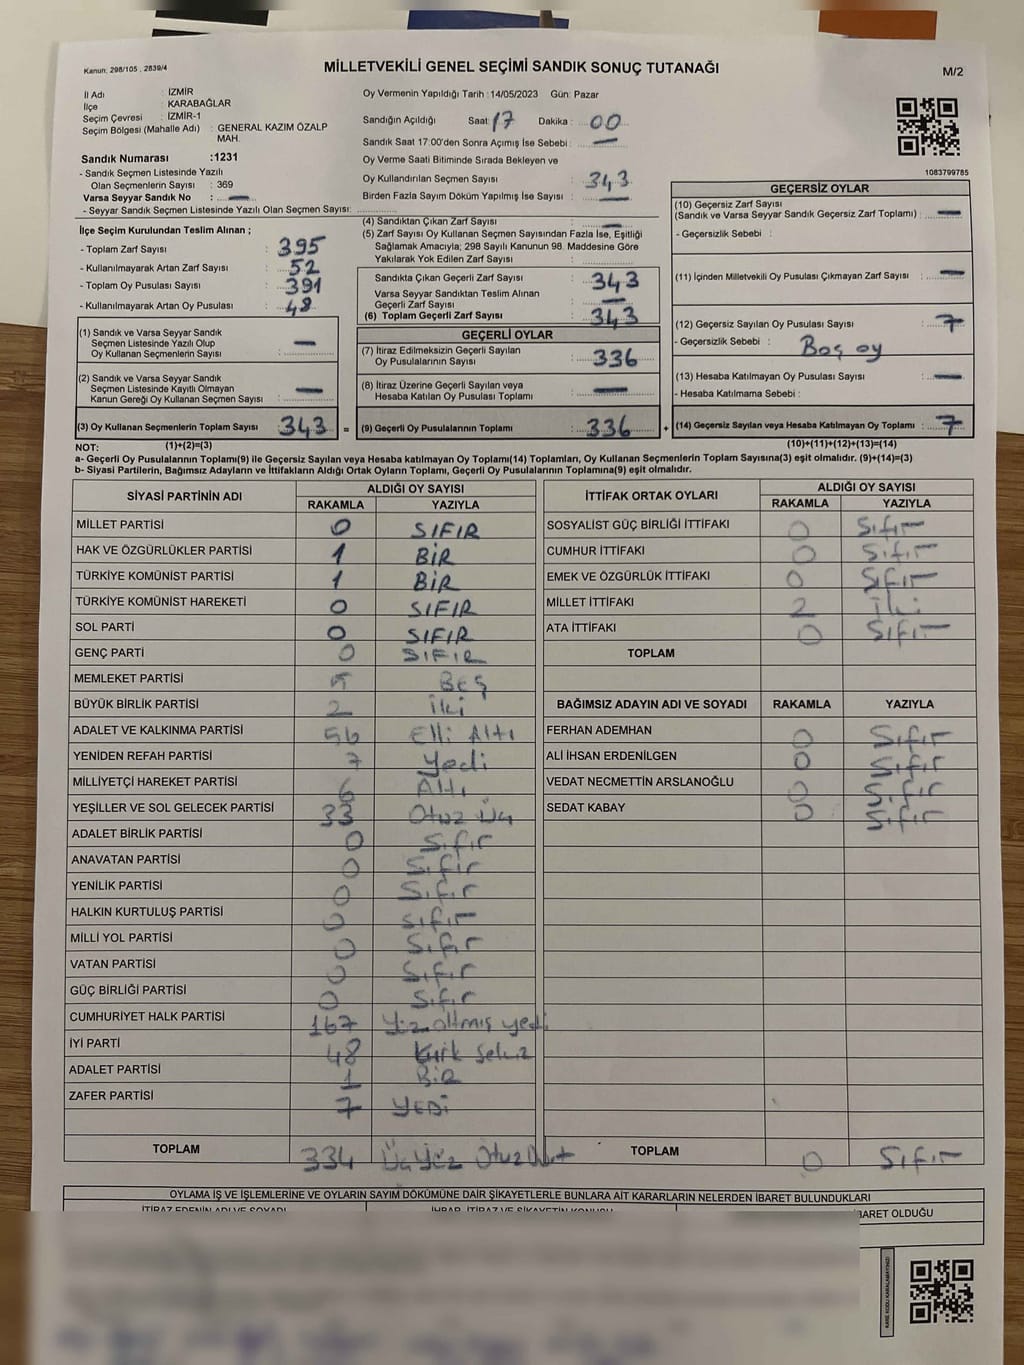 Kanun: 298/105 , 2839/4
MİLLETVEKİLİ GENEL SEÇİMİ SANDIK SONUÇ TUTANAĞI
M/2
İl Adı : İZMİR
İlçe : KARABAĞLAR
Seçim Çevresi : İZMİR-1
Seçim Bölgesi (Mahalle Adı) : GENERAL KAZIM ÖZALP
MAH.
Sandık Numarası :1231
- Sandık Seçmen Listesinde Yazılı
Olan Seçmenlerin Sayısı : 369
Varsa Seyyar Sandık No : —
- Seyyar Sandık Seçmen Listesinde Yazılı Olan Seçmen Sayısı:
Oy Vermenin Yapıldığı Tarih : 14/05/2023 Gün: Pazar
Sandığın Açıldığı Saat : 17 Dakika : 00
Sandık Saat 17:00'den Sonra Açımış İse Sebebi : —
Oy Verme Saati Bitiminde Sırada Bekleyen ve
Oy Kullandırılan Seçmen Sayısı : 343
Birden Fazla Sayım Döküm Yapılmış İse Sayısı : —
1083799785
İlçe Seçim Kurulundan Teslim Alınan ;
- Toplam Zarf Sayısı : 395
- Kullanılmayarak Artan Zarf Sayısı : 52
- Toplam Oy Pusulası Sayısı : 391
- Kullanılmayarak Artan Oy Pusulası : 48
(1) Sandık ve Varsa Seyyar Sandık
Seçmen Listesinde Yazılı Olup
Oy Kullanan Seçmenlerin Sayısı : —
(2) Sandık ve Varsa Seyyar Sandık
Seçmen Listesinde Kayıtlı Olmayan
Kanun Gereği Oy Kullanan Seçmen Sayısı : —
(3) Oy Kullanan Seçmenlerin Toplam Sayısı : 343 =
(4) Sandıktan Çıkan Zarf Sayısı : —
(5) Zarf Sayısı Oy Kullanan Seçmen Sayısından Fazla İse, Eşitliği
Sağlamak Amacıyla; 298 Sayılı Kanunun 98. Maddesine Göre
Yakılarak Yok Edilen Zarf Sayısı :
Sandıkta Çıkan Geçerli Zarf Sayısı : 343
Varsa Seyyar Sandıktan Teslim Alınan
Geçerli Zarf Sayısı : —
(6) Toplam Geçerli Zarf Sayısı : 343
GEÇERLİ OYLAR
(7) İtiraz Edilmeksizin Geçerli Sayılan
Oy Pusulalarının Sayısı : 336
(8) İtiraz Üzerine Geçerli Sayılan veya
Hesaba Katılan Oy Pusulası Toplamı : —
(9) Geçerli Oy Pusulalarının Toplamı : 336 +
GEÇERSİZ OYLAR
(10) Geçersiz Zarf Sayısı
(Sandık ve Varsa Seyyar Sandık Geçersiz Zarf Toplamı) : —
- Geçersizlik Sebebi :
(11) İçinden Milletvekili Oy Pusulası Çıkmayan Zarf Sayısı : —
(12) Geçersiz Sayılan Oy Pusulası Sayısı : 7
- Geçersizlik Sebebi : Boş oy
(13) Hesaba Katılmayan Oy Pusulası Sayısı : —
- Hesaba Katılmama Sebebi :
(14) Geçersiz Sayılan veya Hesaba Katılmayan Oy Toplamı : 7
NOT: (1)+(2)=(3) (10)+(11)+(12)+(13)=(14)
a- Geçerli Oy Pusulalarının Toplamı(9) ile Geçersiz Sayılan veya Hesaba katılmayan Oy Toplamı(14) Toplamları, Oy Kullanan Seçmenlerin Toplam Sayısına(3) eşit olmalıdır. (9)+(14)=(3)
b- Siyasi Partilerin, Bağımsız Adayların ve İttifakların Aldığı Ortak Oyların Toplamı, Geçerli Oy Pusulalarının Toplamına(9) eşit olmalıdır.
SİYASİ PARTİNİN ADI ALDIĞI OY SAYISI
RAKAMLA YAZIYLA
MİLLET PARTİSİ 0 SIFIR
HAK VE ÖZGÜRLÜKLER PARTİSİ 1 BİR
TÜRKİYE KOMÜNİST PARTİSİ 1 BİR
TÜRKİYE KOMÜNİST HAREKETİ 0 SIFIR
SOL PARTİ 0 SIFIR
GENÇ PARTİ 0 SIFIR
MEMLEKET PARTİSİ 5 BEŞ
BÜYÜK BİRLİK PARTİSİ 2 İki
ADALET VE KALKINMA PARTİSİ 56 Elli Altı
YENİDEN REFAH PARTİSİ 7 Yedi
MİLLİYETÇİ HAREKET PARTİSİ 6 Altı
YEŞİLLER VE SOL GELECEK PARTİSİ 33 Otuz Üç
ADALET BİRLİK PARTİSİ 0 Sıfır
ANAVATAN PARTİSİ 0 Sıfır
YENİLİK PARTİSİ 0 Sıfır
HALKIN KURTULUŞ PARTİSİ 0 Sıfır
MİLLİ YOL PARTİSİ 0 Sıfır
VATAN PARTİSİ 0 Sıfır
GÜÇ BİRLİĞİ PARTİSİ 0 Sıfır
CUMHURİYET HALK PARTİSİ 167 Yüz altmış yedi
İYİ PARTİ 48 Kırk Sekiz
ADALET PARTİSİ 1 BİR
ZAFER PARTİSİ 7 YEDİ
TOPLAM 334 Üç Yüz Otuz Dört
İTTİFAK ORTAK OYLARI ALDIĞI OY SAYISI
RAKAMLA YAZIYLA
SOSYALİST GÜÇ BİRLİĞİ İTTİFAKI 0 Sıfır
CUMHUR İTTİFAKI 0 Sıfır
EMEK VE ÖZGÜRLÜK İTTİFAKI 0 Sıfır
MİLLET İTTİFAKI 2 İki
ATA İTTİFAKI 0 Sıfır
TOPLAM
BAĞIMSIZ ADAYIN ADI VE SOYADI RAKAMLA YAZIYLA
FERHAN ADEMHAN 0 Sıfır
ALİ İHSAN ERDENİLGEN 0 Sıfır
VEDAT NECMETTİN ARSLANOĞLU 0 Sıfır
SEDAT KABAY 0 Sıfır
TOPLAM 0 Sıfır
OYLAMA İŞ VE İŞLEMLERİNE VE OYLARIN SAYIM DÖKÜMÜNE DAİR ŞİKAYETLERLE BUNLARA AİT KARARLARIN NELERDEN İBARET BULUNDUKLARI
İTİRAZ EDENİN ADI VE SOYADI İHBAR, İTİRAZ VE ŞİKAYETİN KONUSU İBARET OLDUĞU
KARE KODU KARALAMAYINIZ!